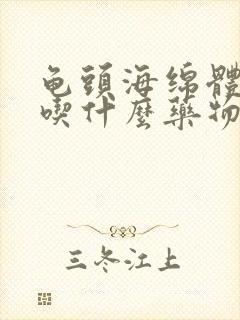 龟頭海绵體
喫什麼藥物
三冬江上